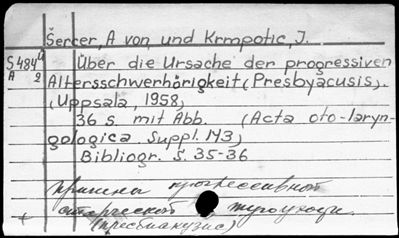 Šercer, A von, und Krmpotic, J.
S484 4 Über die Ursache der progressiven
A 2 Altersschwerhörigkeit (Presbyacusis).
(Uppsala, 1958)
36 s mit Abb. (Acta oto-laryn-
gologica. Suppl. 143)
Bibliogr. S. 35-36
причина прогрессивной
старческой тугоухости.
(пресбиакузис)